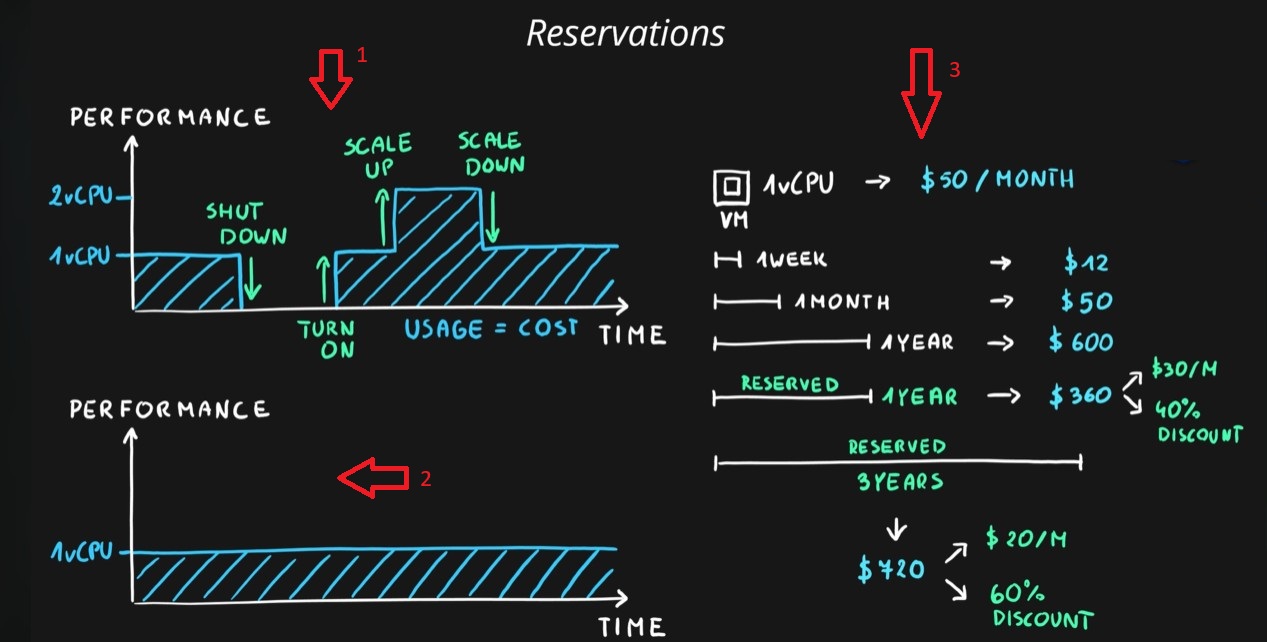 Reservations
1
PERFORMANCE
2vCPU
1vCPU
SHUT
DOWN
SCALE
UP
SCALE
DOWN
TURN
ON
USAGE = COST
TIME
2
PERFORMANCE
1vCPU
TIME
3
1vCPU → $50 / MONTH
VM
1WEEK → $12
1MONTH → $50
1YEAR → $600
RESERVED
1YEAR → $360
$30/M
40%
DISCOUNT
RESERVED
3YEARS
$720
$20/M
60%
DISCOUNT